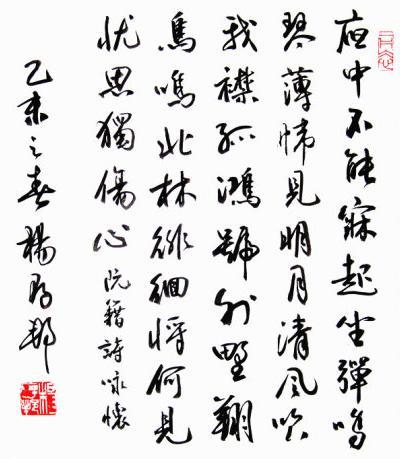 夜中不能寐起坐彈鳴
琴薄帷見明月清風吹
我襟孤鴻號外野翔
鳥鳴北林徘徊將何見
忧思獨傷心 阮籍詩咏懷
乙未之春 楊